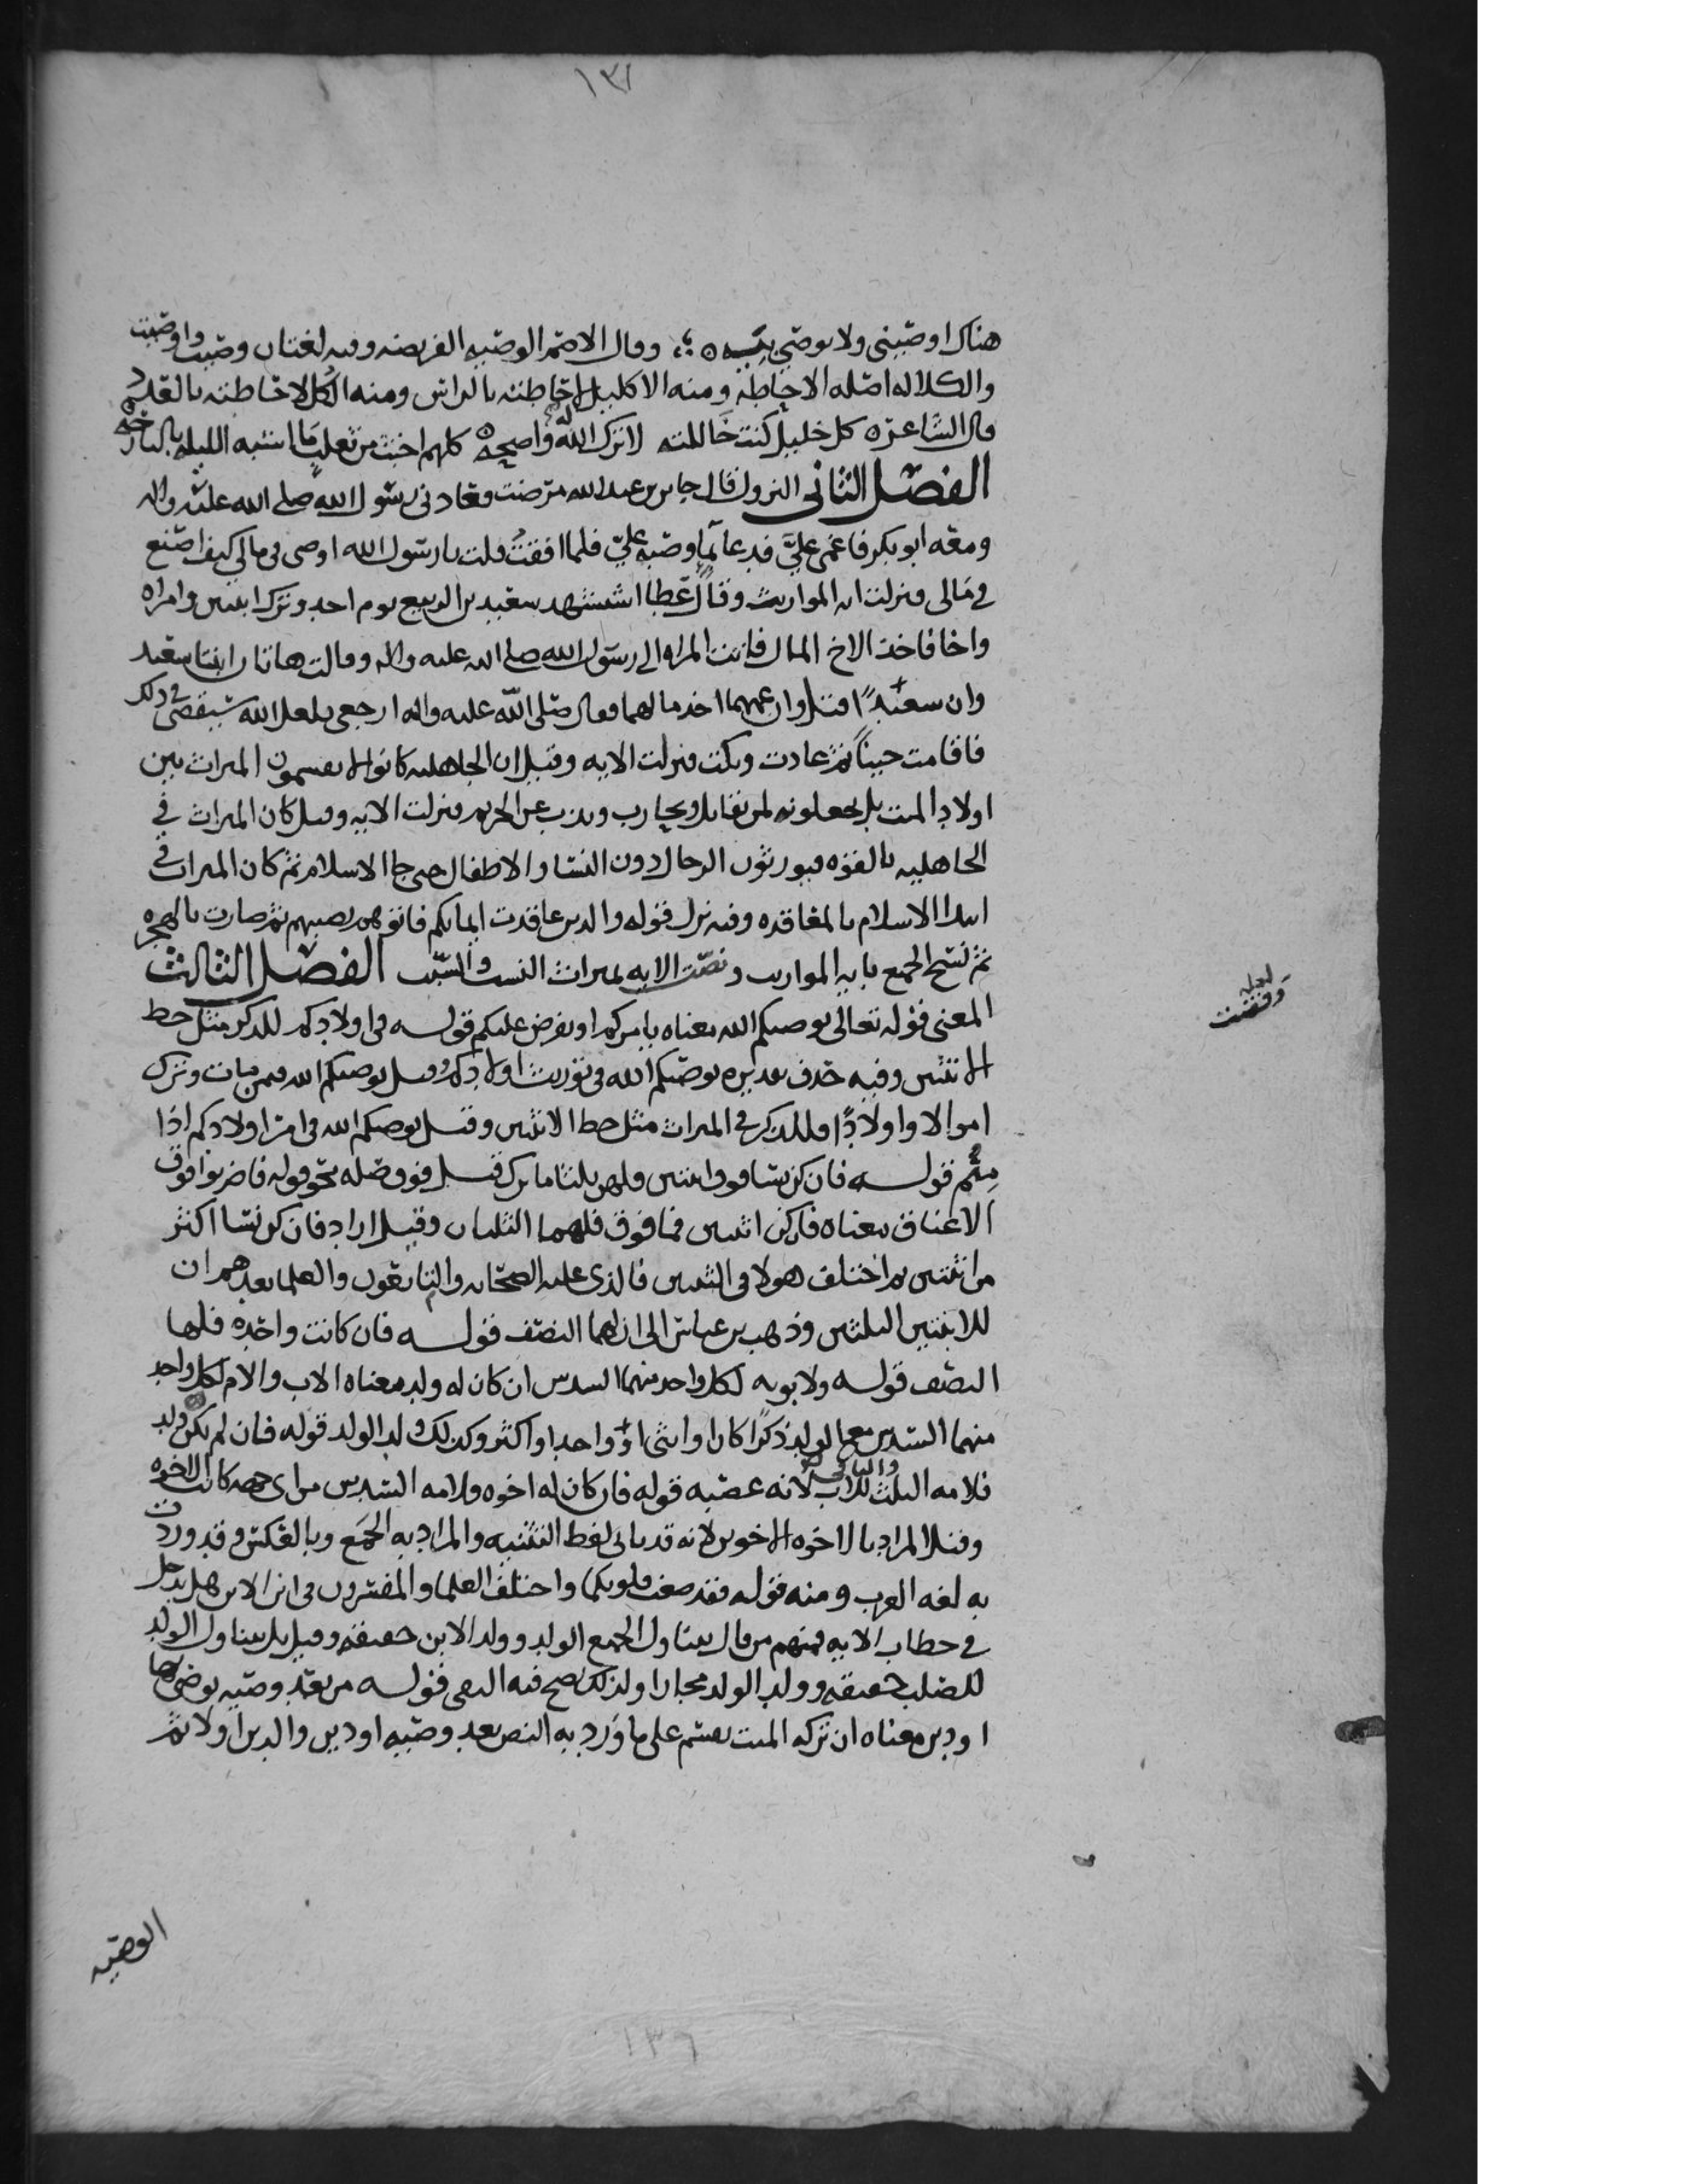 ١٣١
هناك اوصيني ولا توصي بيه ه وقال الاصم الوصيه الفريضه وفيه لغتان وصيت واوصيت
والكلاله اصله الاحاطه ومنه الاكليل لاحاطته بالراس ومنه الكل لاحاطته بالعدد
قال الشاعر ه كل خليل كنت خاللته لا ترك الله له واضحه ه كلهم اخبث من ثعلب ما اشبه الليله بالبارحه
الفصل الثاني النزول قال جابر بن عبدالله مرضت فعادني رسول الله صلى الله عليه واله
ومعه ابو بكر فاغمي علي فدعا بما وصبه علي فلما افقت قلت يا رسول الله اوصي في مالي كيف اصنع
في مالي فنزلت ايه المواريث وقال عطا استشهد سعيد بن الربيع يوم احد وترك ابنتين وامراه
واخا فاخذ الاخ المال فاتت المراه الى رسول الله صلى الله عليه واله وقالت هاتان ابنتا سعيد
وان سعيدا قتل وان عمهما اخذ مالهما فقال صلى الله عليه واله ارجعي فلعل الله سيقضي في ذلك
فاقامت حينا ثم عادت وبكت فنزلت الايه وقيل ان الجاهليه كانوا لا يقسمون الميراث بين
اولاد الميت بل يجعلونه لمن يقاتل ويحارب ويذب عن الحريم فنزلت الايه وقيل كان الميراث في
الجاهليه بالقوه فيورثون الرجال دون النسا والاطفال حتى جا الاسلام ثم كان الميراث في
ابتدا الاسلام بالمعاقده وفيه نزل قوله والذين عاقدت ايمانكم فاتوهم نصيبهم ثم صارت بالهجره
ثم نسخ الجمع بايه المواريث ونصت الايه لميراث النسب والسبب الفصل الثالث
لعله
وقضت
المعنى قوله تعالى يوصيكم الله معناه يامركم او يفرض عليكم قوله في اولادكم للذكر مثل حظ
الانثيين وفيه حذف تقديره يوصيكم الله في توريث اولادكم وقيل يوصيكم الله فيمن مات وترك
اموالا واولادا فللذكر في الميراث مثل حظ الانثيين وقيل يوصيكم الله في امر اولادكم اذا
متم قوله فان كن نسا فوق اثنتين فلهن ثلثا ما ترك قيل فوق صله نحو قوله فاضربوا فوق
الاعناق معناه فان كن اثنتين فما فوق فلهما الثلثان وقيل اراد فان كن نسا اكثر
من اثنتين ثم اختلف هولا في الثنتين فالذي عليه الصحابه والتابعون والعلما بعدهم ان
للابنتين الثلثين وذهب بن عباس الى ان لهما النصف قوله فان كانت واحده فلها
النصف قوله ولابويه لكل واحد منهما السدس ان كان له ولد معناه الاب والام لكل واحد
منهما السدس مع الولد ذكرا كان او انثى او واحدا او اكثر وكذلك ولد الولد قوله فان لم يكن ولد
فلامه الثلث والباقي للاب لانه عصبه قوله فان كان له اخوه فلامه السدس من اي جهه كانت الاخوه
وقيل المراد بالاخوه الاخوين لانه قد ياتي لفظ التثنيه والمراد به الجمع وبالعكس وقد وردت
به لغه العرب ومنه قوله فقد صغت قلوبكما واختلف العلما والمفسرون في ابن الابن هل يدخل
في خطاب الايه فمنهم من قال يتناول الجمع الولد وولد الابن حقيقه وقيل بل يتناول الولد
للصلب حقيقه وولد الولد مجازا ولذلك يصح فيه النفي قوله من بعد وصيه يوصي بها
او دين معناه ان تركه الميت يقسم على ما ورد به النص بعد وصيه او دين والدين اولا ثم
الوصيه
١٣٦